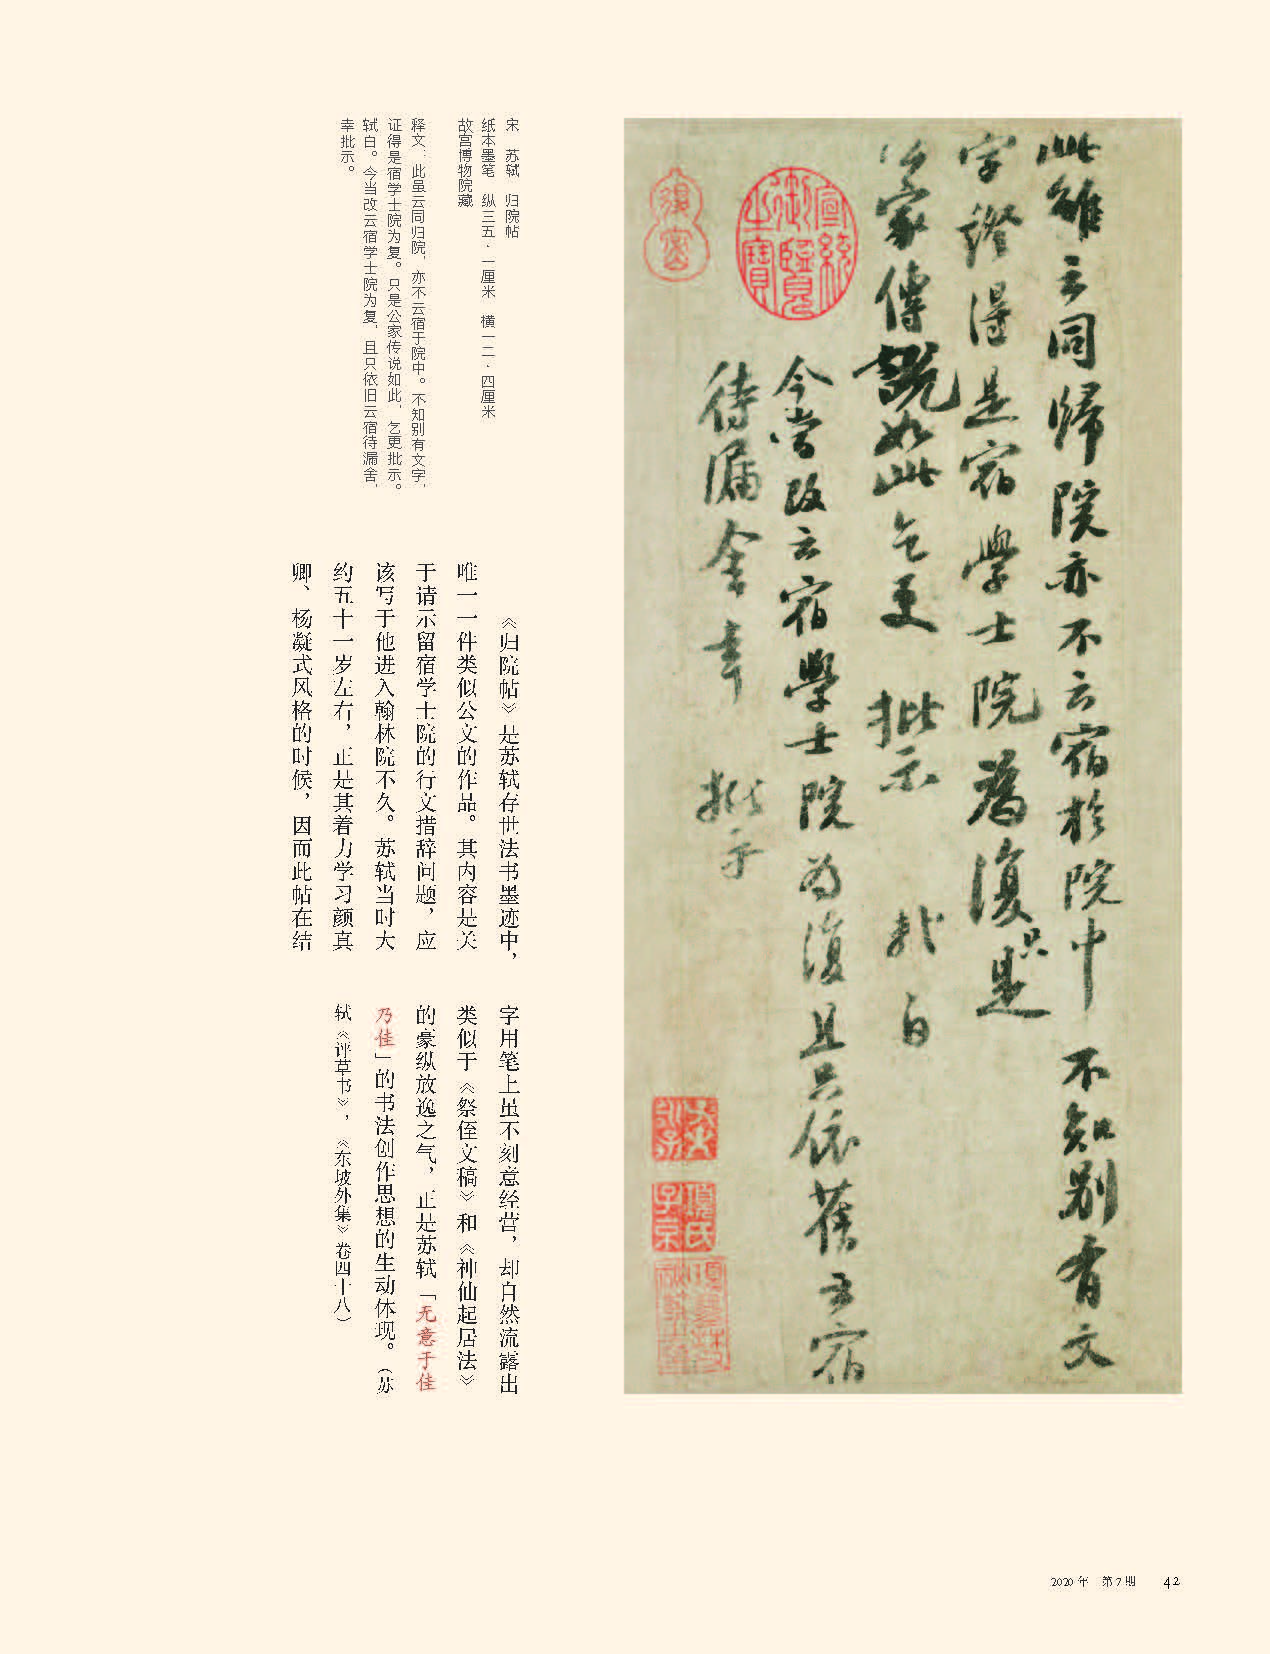 此雖云同歸院亦不云宿於院中不知别有文
字證得是宿學士院為復只是
公家傳說如此乞更批示軾白
今當改云宿學士院为復且只依舊云宿
待漏舍幸批示
宣統御覽之寶
項氏子京
宋 苏轼 归院帖
纸本墨笔 纵三五·一厘米 横一二·四厘米
故宫博物院藏
释文：此虽云同归院，亦不云宿于院中。不知别有文字，
证得是宿学士院为复。只是公家传说如此，乞更批示。
轼白。今当改云宿学士院为复，且只依旧云宿待漏舍，
幸批示。
《归院帖》是苏轼存世法书墨迹中，
唯一一件类似公文的作品。其内容是关
于请示留宿学士院的行文措辞问题，应
该写于他进入翰林院不久。苏轼当时大
约五十一岁左右，正是其着力学习颜真
卿、杨凝式风格的时候，因而此帖在结
字用笔上虽不刻意经营，却自然流露出
类似于《祭侄文稿》和《神仙起居法》
的豪纵放逸之气，正是苏轼「无意于佳
乃佳」的书法创作思想的生动体现。（苏
轼《评草书》，《东坡外集》卷四十八）
2020年 第7期 42